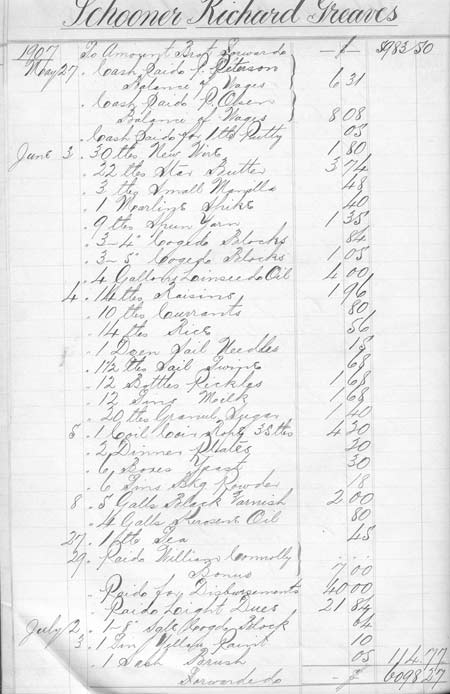 Schooner Richard Greaves
1907 To Amount Brot Forwards — $ 5983 50
May 27 . Cash Paid P. Peterson
Balance of Wages 6 31
. Cash Paid P. Olsen
Balance of Wages 8 08
. Cash Paid for 1 lb Putty 05
June 3 . 30 lbs New Wire 1 80
. 22 lbs Star Butter 3 74
. 3 lbs Small Manilla 48
. 1 Marline Spike 40
. 9 lbs Spun Yarn 1 35
. 3-4" Blocks 84
. 3-5" Blocks 1 05
. 4 Gallons Linseed Oil 4 00
4 . 14 lbs Raisins 1 96
. 10 lbs Currants 80
. 14 lbs Rice 56
. 1 Dozen Sail Needles
. 1½ lbs Sail Twine 68
. 12 Bottles Pickles 1 68
. 12 Tins Milk 1 68
. 20 lbs Granul Sugar 1 40
5 . 1 Coil Coir Rope 35 lbs 4 20
. 2 Dinner Plates 20
. 6 Boxes Yeast 30
. 6 Tins Bkg Powder 18
8 . 5 Galls Black Varnish 2 00
. 4 Galls Kerosene Oil 80
27 . 1 lb Tea 45
29 . Paid William Connolly
Bonus 7 00
. Paid for Disbursements 40 00
. Paid Light Dues 21 84
July 2 . 1-8" Block 64
3 . 1 Tin Yellow Paint 10
. 1 Sash Brush 05 114 77
Forwarded — $ 6098 27